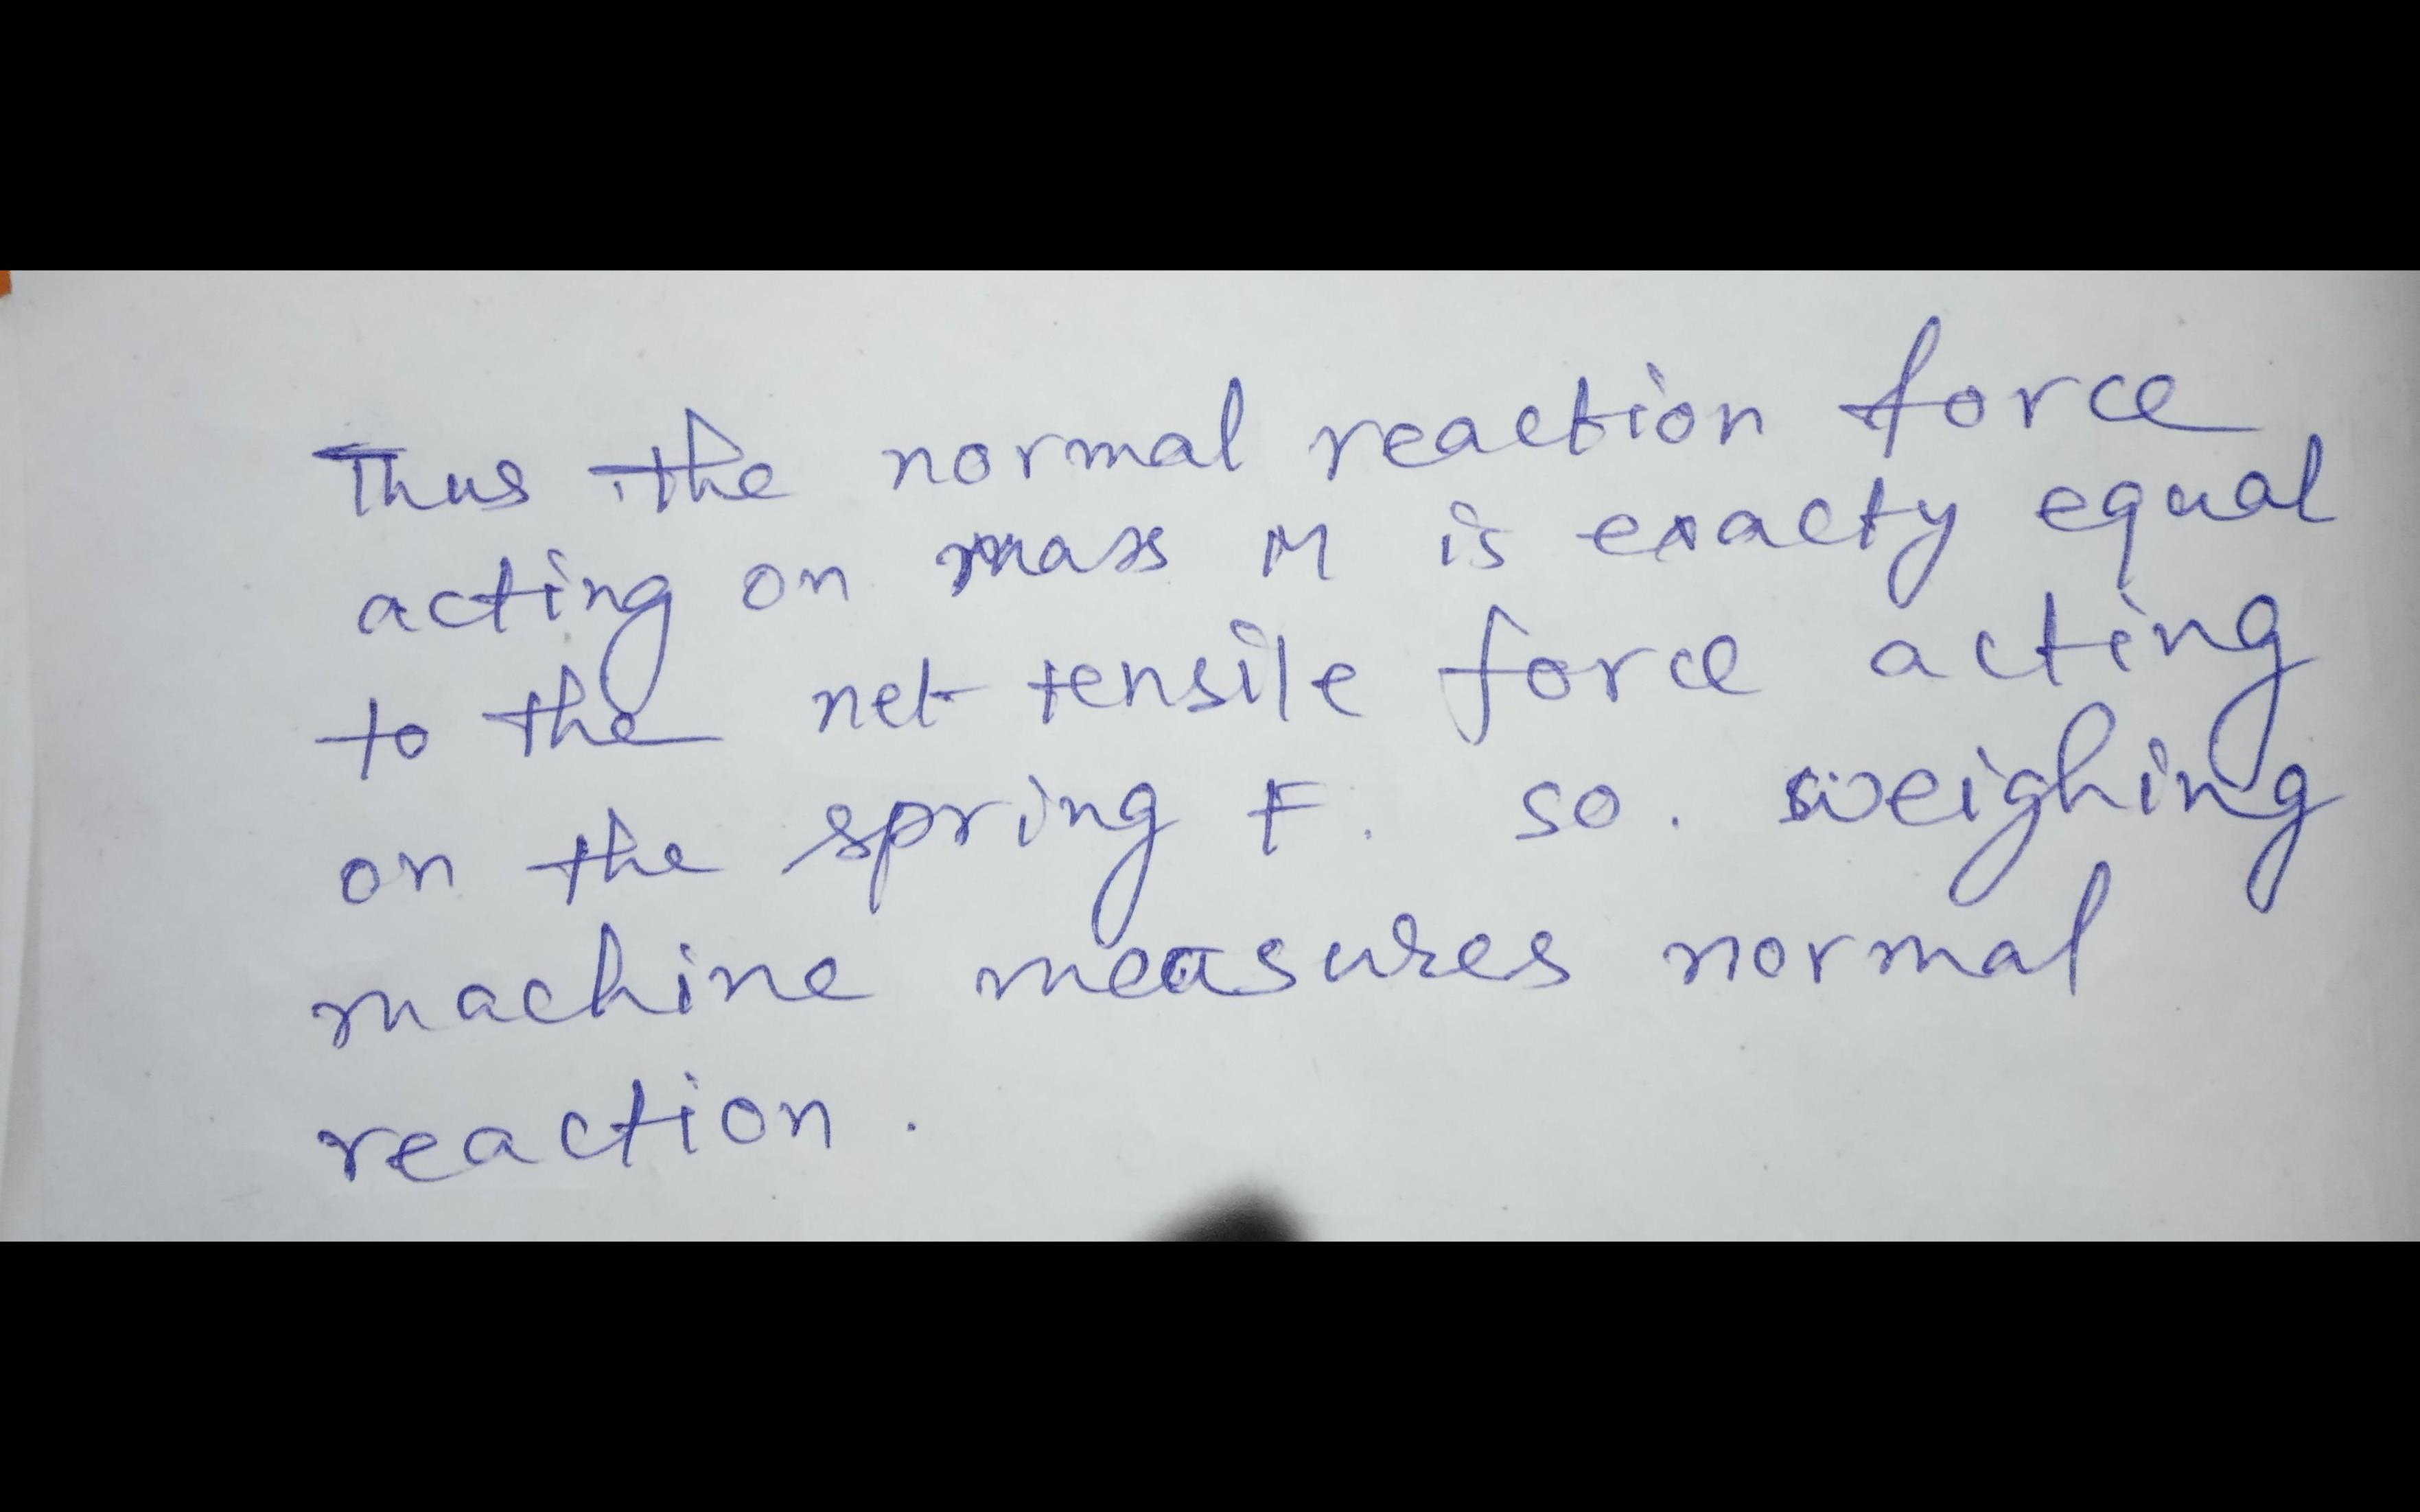 Thus the normal reaction force
acting on mass M is exacty equal
to the net tensile force acting
on the spring F. so. weighing
machine measures normal
reaction.